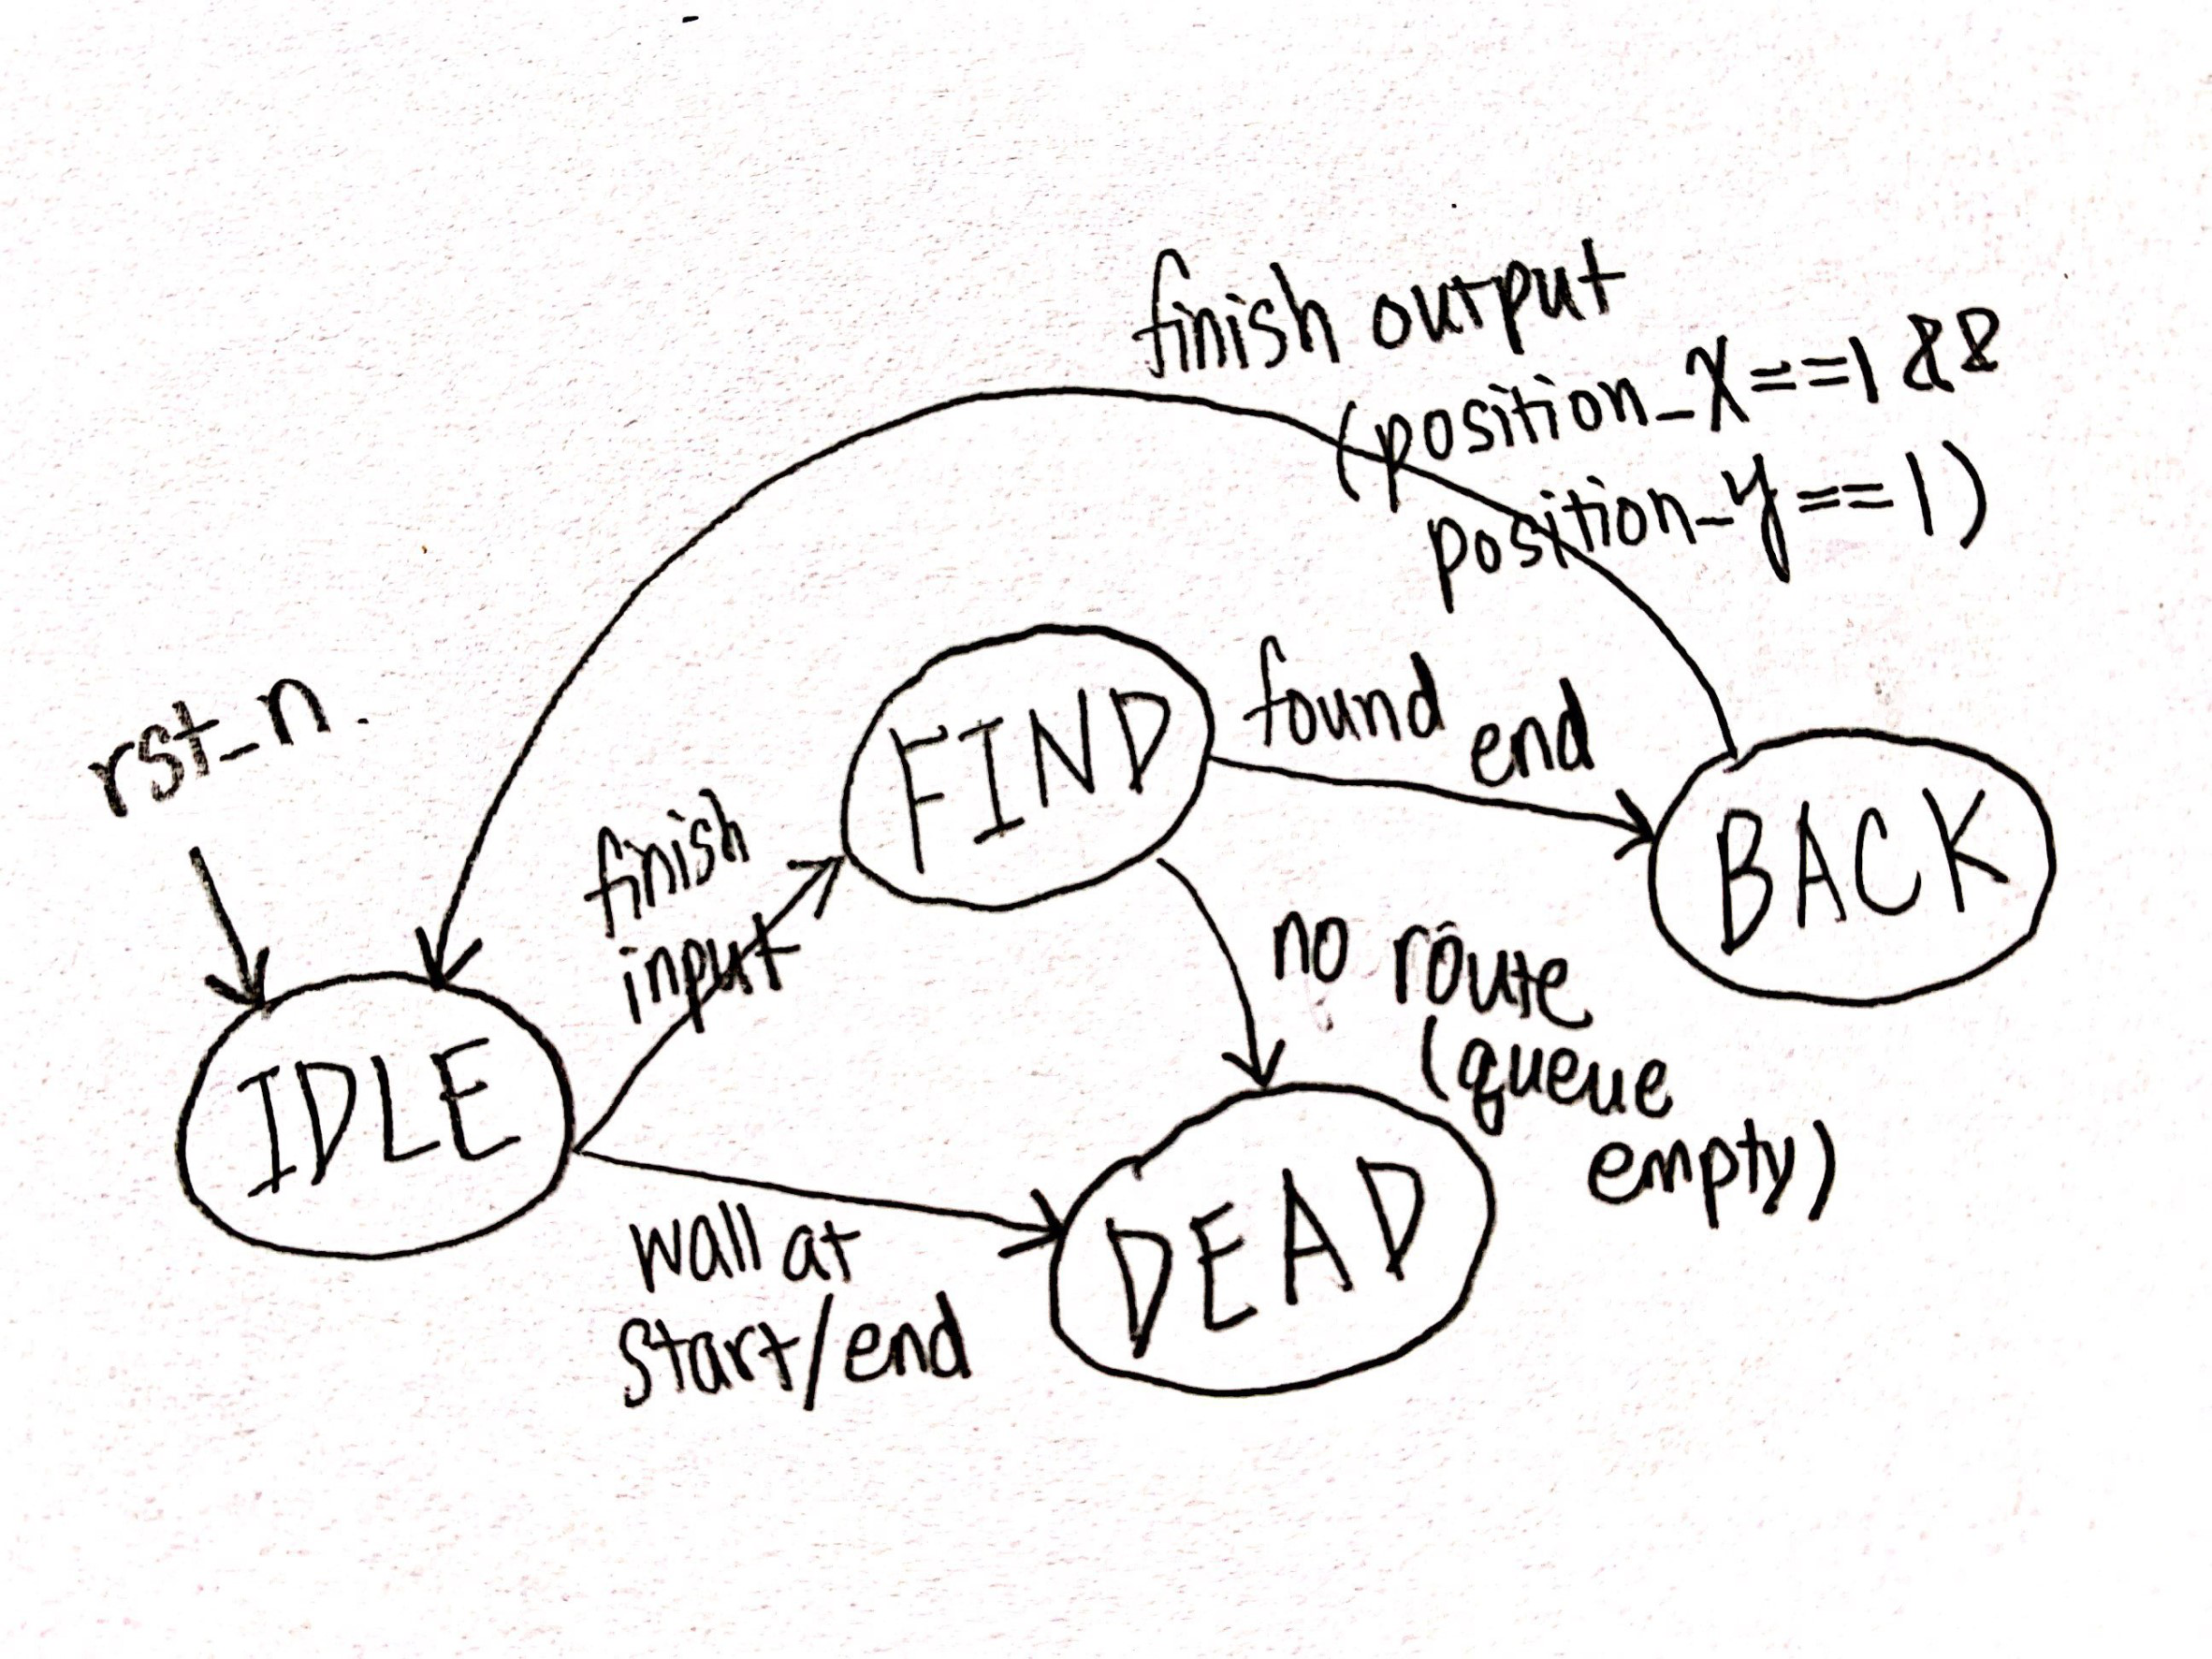 finish output
(position_x==1 &&
position_y==1)
rst_n.
FIND
found end
BACK
finish
input
no route
(queue
empty)
IDLE
wall at
start/end
DEAD